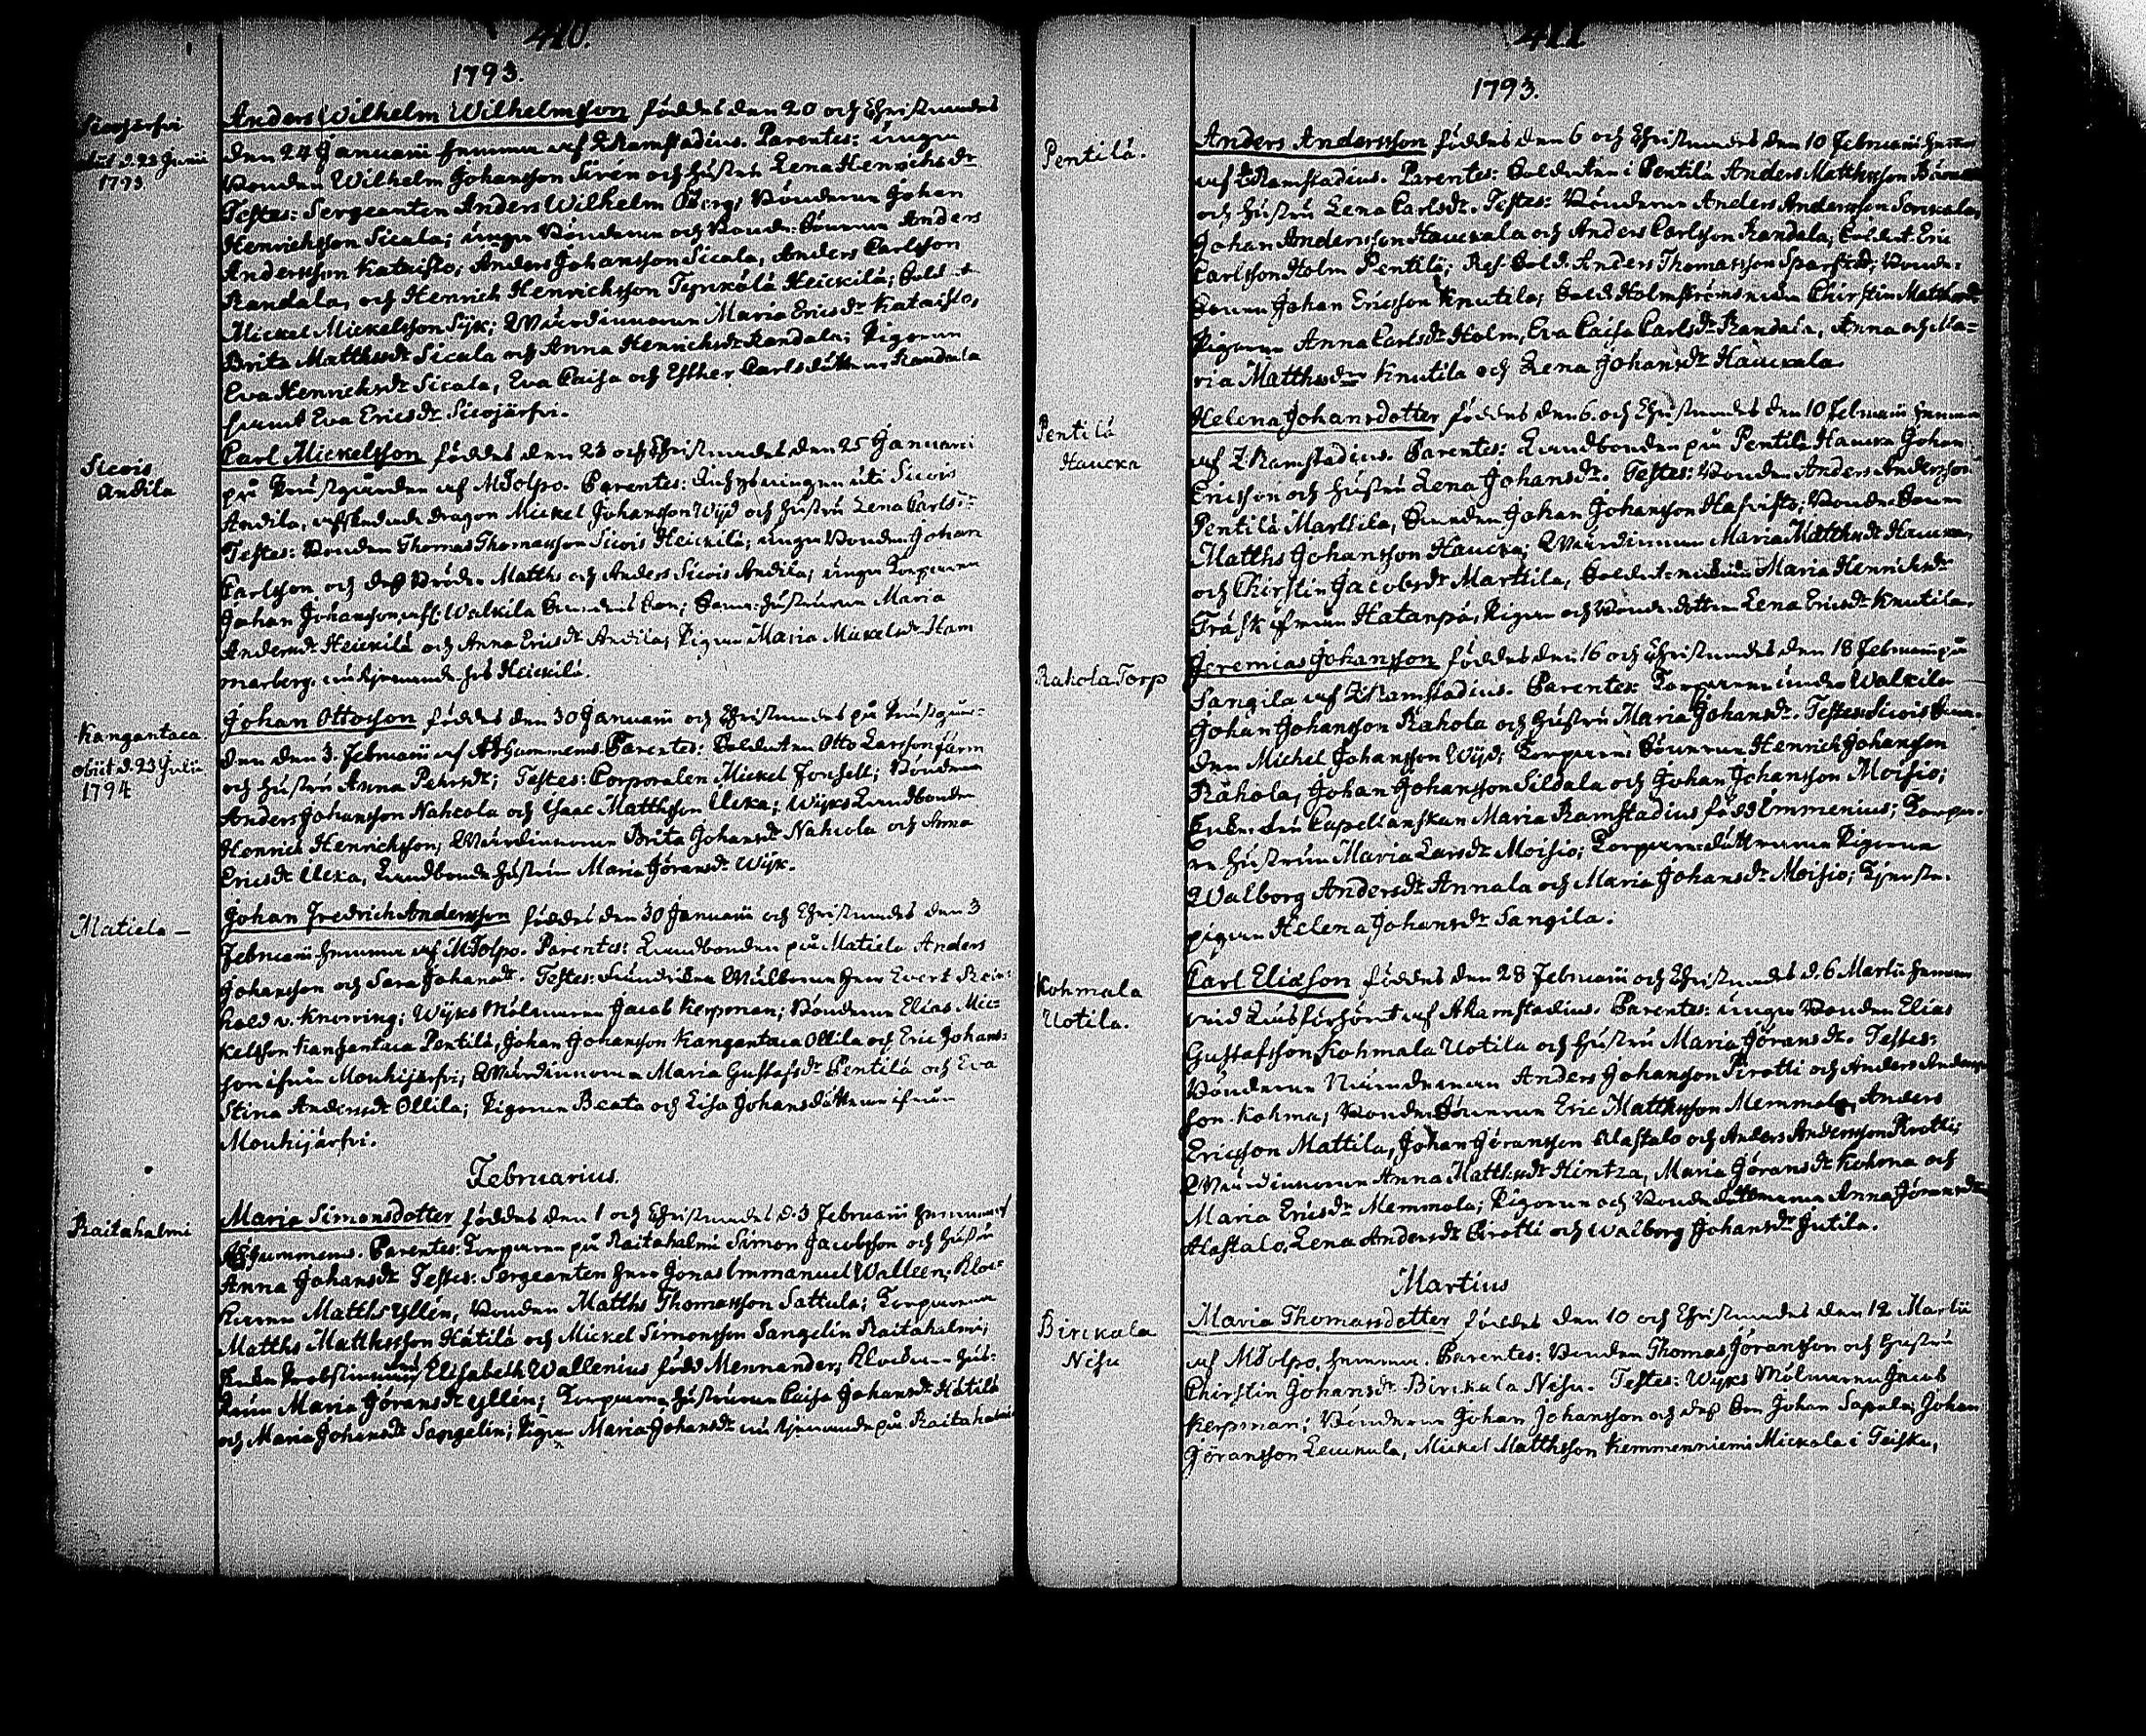 410.
1793.
Siwojärfvi
obiit d. 23 Junii
1793
Anders Wilhelm Wilhelmsson föddes den 20 och Christnades
den 24 Januarii hemma af Z Ramstadius. Parentes: unga
Bonden Wilhelm Johansson Sirén och hustru Lena Henrichsdr
Testes: Sergeanten Anders Wilhelm Berg; Bönderne Johan
Henrichsson Sicala; unga Bönderne och Bonde-Sönerne Anders
Andersson Kataisto; Anders Johansson Sicala, Anders Carlsson
Randala, och Henrich Henrichsson Heickilä; Sold
Mickel Mickelsson Sijk; Wärdinnorne Maria Ericsdr Kataisto,
Brita Matthsdr Sicala och Anna Henrichsdr Randala; Pigorne
Eva Henrichsdr Sicala, Eva Caisa och Esther Carlsdöttrar Randala
samt Eva Ericsdr Sicojärfvi.
Sicois
Andila
Carl Mickelsson föddes den 23 och Christnades den 25 Januarii
på Prästgården af M Tolpo. Parentes: Inhysningen uti Sicois
Andila, afskedade dragon Mickel Johansson Wijd och hustru Lena Carlsdr
Testes: Bonden Thomas Thomasson Sicois Heickilä; unga Bonden Johan
Carlsson och dess Bröder Matths och Anders Sicois Andila; unga Torparen
Johan Johansson, Walkila son; hustrurne Maria
Andersdr Heickilä och Anna Ericsdr Andila; Pigan Maria Mickelsdr Ham
marberg, nu tjenande hos Heickilä.
Kangantaca
obiit d. 23 Julii
1794
Johan Ottosson föddes den 30 Januarii och Christnades på Prästgår-
den den 3. Februarii af Hummerus. Parentes: Soldaten Otto Larsson Järn
och hustru Anna Pehrsdr; Testes: Corporalen Mickel Forssell; Bönderne
Anders Johansson Nahcola och Isaac Matthsson Ucka; Wijks Landbonden
Henrick Henrichsson; Wärdinnorne Brita Johansdr Nahcola och Anna
Ericsdr Ucka, Landbonde hustrun Maria Göransdr Wijk.
Matiela —
Johan Fredrich Andersson föddes den 30 Januarii och Christnades den 3
Februarii hemma af M Tolpo. Parentes: Landbonden på Matiela Anders
Johansson och Sara Johansdr. Testes: Fendriken Wälborne Herr Evert Rein-
hold v. Knorring; Wijks Mölnaren Jacob Kerpman; Bönderne Elias Mic-
kelsson Kangantaca Pentilä, Johan Johansson Kangantaca Ollila och Eric Johans-
son ifrån Mouhijärfvi; Wärdinnorna Maria Gustafsdr Pentilä och Eva
Stina Andersdr Ollila; Pigorne Beata och Lisa Johansdöttrar ifrån
Mouhijärfvi.
Februarius.
Raitahalmi
Maria Simonsdotter föddes den 1 och Christnades d. 3 Februarii hemma af
Hummerus. Parentes: Torparen på Raitahalmi Simon Jacobsson och hustru
Anna Johansdr Testes: Sergeanten Herr Jonas Immanuel Walleen; Kloc-
karen Matths Yllén, Bonden Matths Thomasson Sattula; Torparena
Matths Matthsson Hätilä och Mickel Simonsson Sangelin Raitahalmi;
Enke Probstinnan Elisabeth Wallenius född Mennander; Klockare hus-
trun Maria Göransdr Yllén; Torpare hustrurna Caisa Johansdr Hätilä
och Maria Johansdr Sangelin; Pigan Maria Johansdr nu tjenande på Raitahalmi
411
1793.
Pentilä.
Anders Andersson föddes den 6 och Christnades den 10 Februarii hemma
af Z Ramstadius. Parentes: Soldaten i Pentilä Anders Matthsson
och hustru Lena Carlsdr. Testes: Bönderne Anders Andersson Sorckala,
Johan Andersson Hauckala och Anders Carlsson Randala; Soldat Eric
Carlsson Holm Pentilä; Res. Sold. Anders Thomasson Sparf; Bonde-
sonen Johan Ericsson Knutila; Sold. Chirstin Matthsdr
Pigorne Anna Carlsdr Holm, Eva Caisa Carlsdr Randala, Anna och Ma-
ria Matthsdr Knutila och Lena Johansdr Hauckala.
Pentilä
Haucka
Helena Johansdotter föddes den 6. och Christnades den 10 Februarii hemma
af Z Ramstadius. Parentes: Landbonden på Pentilä Haucka Johan
Ericsson och hustru Lena Johansdr. Testes: Bonden Anders Andersson
Pentilä Marttila, Bonden Johan Johansson Hafvisto; Bonde Sonen
Matths Johansson Haucka; Wärdinnan Maria Matthsdr Haucka,
och Chirstin Jacobsdr Marttila, Soldate Maria Henrichsdr
Träsk ifrån Hatanpä, Pigan och Bonde-dottren Lena Ericsdr Knutila.
Rahola Torp
Jeremias Johansson föddes den 16 och Christnades den 18 Februarii på
Sangila af Z Ramstadius. Parentes: Torparen under Walkila
Johan Johansson Rahola och hustru Maria Johansdr. Testes: Sicois
den Michel Johansson Wijd; Torpare Sönerne Henrich Johansson
Rahola, Johan Johansson Sildala och Johan Johansson Moisio;
Enke-fru Capellanskan Maria Ramstadius född Emmenius; Torpa-
re hustrun Maria Larsdr Moisio; Torpare döttrarna Pigorna
Walborg Andersdr Annala och Maria Johansdr Moisio; Tjenste-
pigan Helena Johansdr Sangila.
Kohmala
Uotila.
Carl Eliasson föddes den 28 Februarii och Christnades d. 6 Martii hemma
vid Läsförhöret af Ramstadius. Parentes: unga Bonden Elias
Gustafsson Kohmala Uotila och hustru Maria Göransdr. Testes:
Bönderne Nämdeman Anders Johansson Pirotti och Anders Anders-
son Kohma; Bonde Sönerne Eric Matthsson Memmola, Anders
Ericsson Mattila, Johan Göransson Alastalo och Anders Andersson Pirotti;
Wärdinnorna Anna Matthsdr Hintza, Maria Göransdr Kohma och
Maria Ericsdr Memmola; Pigorne och Bonde döttrarna Anna Göransdr
Alastalo, Lena Andersdr Pirotti och Walborg Johansdr Jutila.
Martius
Birckala
Nihu
Maria Thomasdotter föddes den 10 och Christnades den 12 Martii
af M Tolpo. hemma. Parentes: Bonden Thomas Göransson och hustru
Chirstin Johansdr Birckala Nihu. Testes: Wijks Mölnaren Jacob
Kerpman; Bönderne Johan Johansson och dess Son Johan Sapula, Johan
Göransson Leuckula, Mickel Matthsson Kemmenniemi Mickola i Teisko,